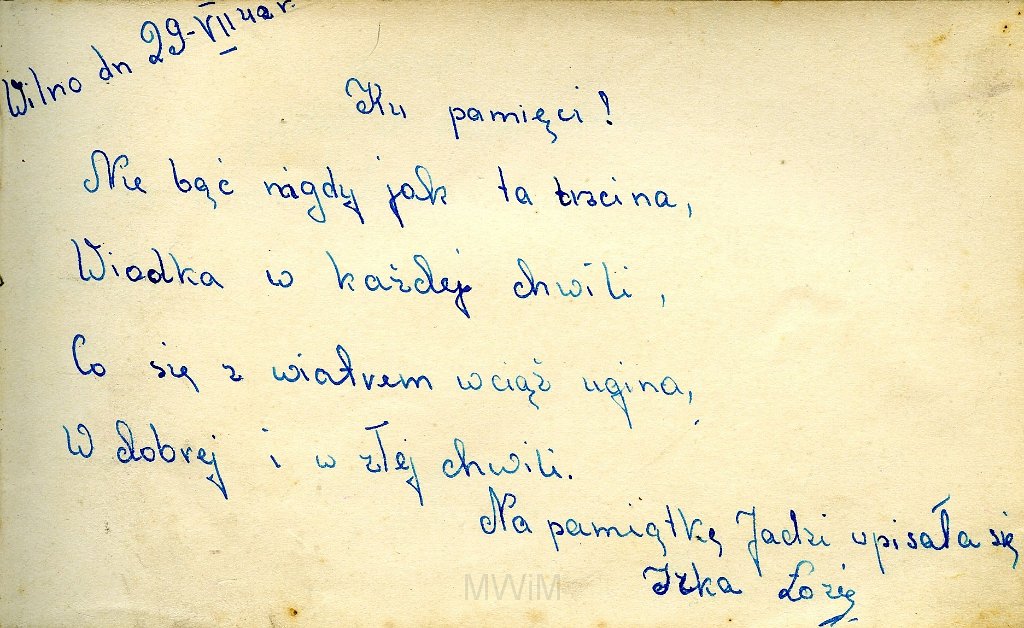 Wilno dn 29-VII 42 r.
Ku pamięci!
Nie bąć nigdy jak ta trzcina,
Wiodka w każdej chwili,
Co się z wiatrem wciąż ugina,
W dobrej i w złej chwili.
Na pamiątkę Jadzi wpisała się
Irka
MWiM